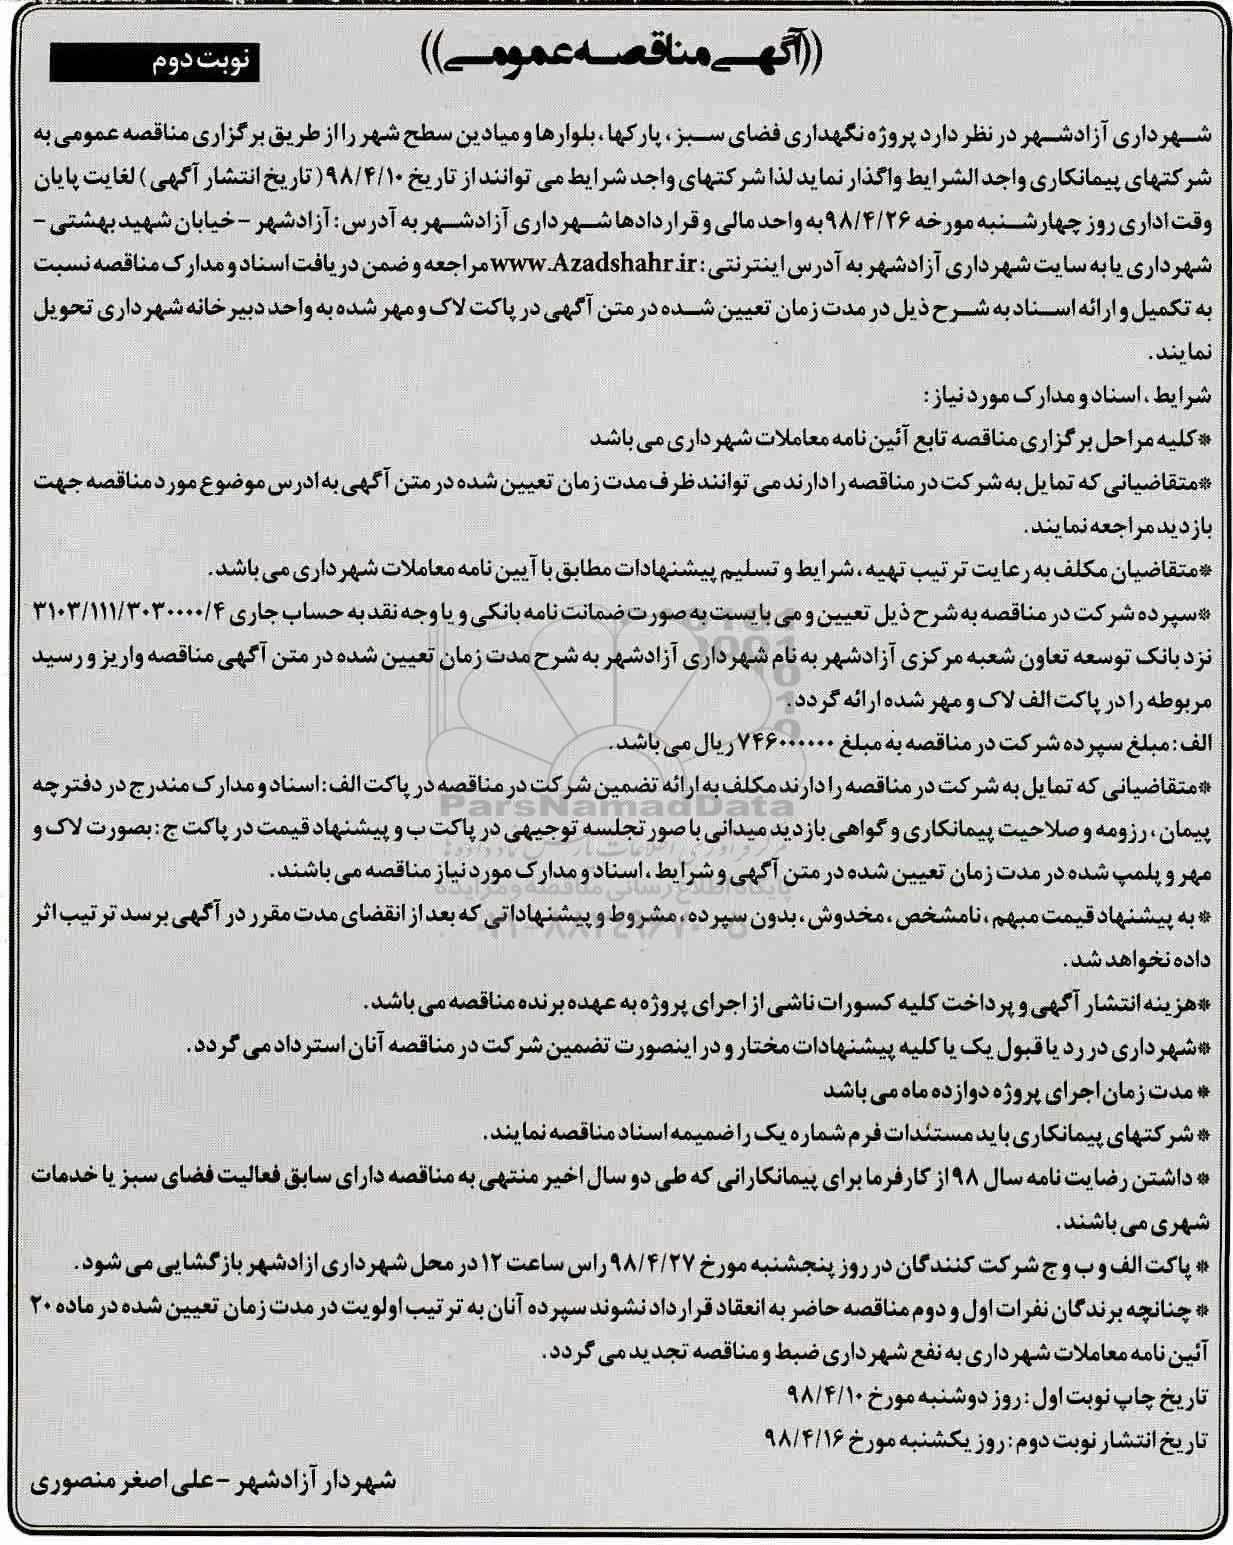 ((آگهی مناقصه عمومی))
نوبت دوم
شهرداری آزادشهر در نظر دارد پروژه نگهداری فضای سبز، پارکها، بلوارها و میادین سطح شهر را از طریق برگزاری مناقصه عمومی به
شرکتهای پیمانکاری واجد الشرایط واگذار نماید لذا شرکتهای واجد شرایط می توانند از تاریخ ۹۸/۴/۱۰ (تاریخ انتشار آگهی) لغایت پایان
وقت اداری روز چهارشنبه مورخه ۹۸/۴/۲۶ به واحد مالی و قراردادها شهرداری آزادشهر به آدرس: آزادشهر - خیابان شهید بهشتی -
شهرداری یا به سایت شهرداری آزادشهر به آدرس اینترنتی: www.Azadshahr.ir مراجعه و ضمن دریافت اسناد و مدارک مناقصه نسبت
به تکمیل و ارائه اسناد به شرح ذیل در مدت زمان تعیین شده در متن آگهی در پاکت لاک و مهر شده به واحد دبیرخانه شهرداری تحویل
نمایند.
شرایط، اسناد و مدارک مورد نیاز:
*کلیه مراحل برگزاری مناقصه تابع آئین نامه معاملات شهرداری می باشد
*متقاضیانی که تمایل به شرکت در مناقصه را دارند می توانند ظرف مدت زمان تعیین شده در متن آگهی به ادرس موضوع مورد مناقصه جهت
بازدید مراجعه نمایند.
*متقاضیان مکلف به رعایت ترتیب تهیه، شرایط و تسلیم پیشنهادات مطابق با آیین نامه معاملات شهرداری می باشد.
*سپرده شرکت در مناقصه به شرح ذیل تعیین و می بایست به صورت ضمانت نامه بانکی و یا وجه نقد به حساب جاری ۳۱۰۳/۱۱۱/۳۰۳۰۰۰۰/۴
نزد بانک توسعه تعاون شعبه مرکزی آزادشهر به نام شهرداری آزادشهر به شرح مدت زمان تعیین شده در متن آگهی مناقصه واریز و رسید
مربوطه را در پاکت الف لاک و مهر شده ارائه گردد.
الف: مبلغ سپرده شرکت در مناقصه به مبلغ ۷۴۶۰۰۰۰۰۰ ریال می باشد.
*متقاضیانی که تمایل به شرکت در مناقصه را دارند مکلف به ارائه تضمین شرکت در مناقصه در پاکت الف: اسناد و مدارک مندرج در دفترچه
پیمان، رزومه و صلاحیت پیمانکاری و گواهی بازدید میدانی با صورتجلسه توجیهی در پاکت ب و پیشنهاد قیمت در پاکت ج: بصورت لاک و
مهر و پلمپ شده در مدت زمان تعیین شده در متن آگهی و شرایط، اسناد و مدارک مورد نیاز مناقصه می باشند.
* به پیشنهاد قیمت مبهم، نامشخص، مخدوش، بدون سپرده، مشروط و پیشنهاداتی که بعد از انقضای مدت مقرر در آگهی برسد ترتیب اثر
داده نخواهد شد.
*هزینه انتشار آگهی و پرداخت کلیه کسورات ناشی از اجرای پروژه به عهده برنده مناقصه می باشد.
*شهرداری در رد یا قبول یک یا کلیه پیشنهادات مختار و در اینصورت تضمین شرکت در مناقصه آنان استرداد می گردد.
* مدت زمان اجرای پروژه دوازده ماه می باشد
* شرکتهای پیمانکاری باید مستندات فرم شماره یک را ضمیمه اسناد مناقصه نمایند.
* داشتن رضایت نامه سال ۹۸ از کارفرما برای پیمانکارانی که طی دو سال اخیر منتهی به مناقصه دارای سابق فعالیت فضای سبز یا خدمات
شهری می باشند.
* پاکت الف و ب و ج شرکت کنندگان در روز پنجشنبه مورخ ۹۸/۴/۲۷ راس ساعت ۱۲ در محل شهرداری ازادشهر بازگشایی می شود.
* چنانچه برندگان نفرات اول و دوم مناقصه حاضر به انعقاد قرارداد نشوند سپرده آنان به ترتیب اولویت در مدت زمان تعیین شده در ماده ۲۰
آئین نامه معاملات شهرداری به نفع شهرداری ضبط و مناقصه تجدید می گردد.
تاریخ چاپ نوبت اول: روز دوشنبه مورخ ۹۸/۴/۱۰
تاریخ انتشار نوبت دوم: روز یکشنبه مورخ ۹۸/۴/۱۶
شهردار آزادشهر - علی اصغر منصوری
ParsNamadData
پایگاه اطلاع رسانی مناقصه و مزایده